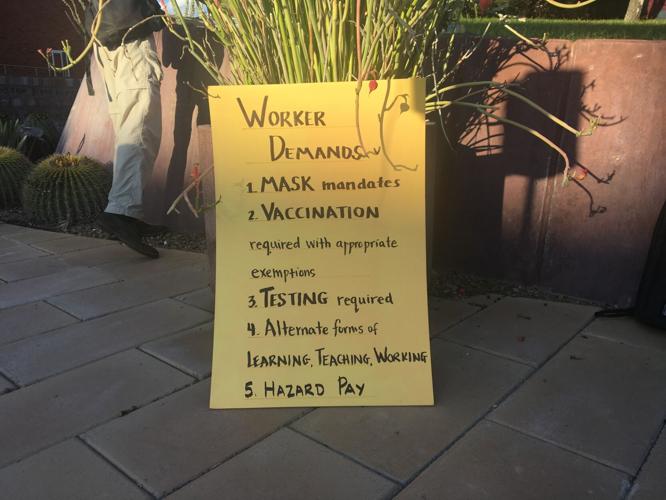 WORKER
DEMANDS
1. MASK mandates
2. VACCINATION
required with appropriate
exemptions
3. TESTING required
4. Alternate forms of
LEARNING, TEACHING, WORKING
5. HAZARD PAY